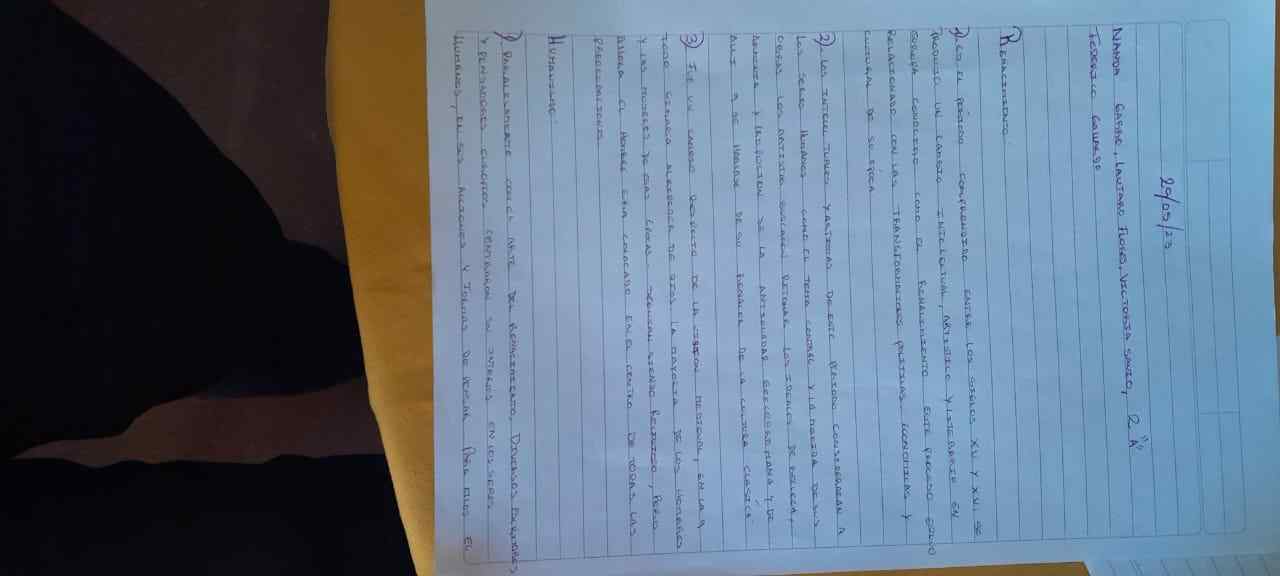 29/05/23
NANDA GARAY, LAUTARO FLORES, VICTORIA SANTO, 2"A"
FEDERICO GALLARDO
RENACIMIENTO:
1) ES EL PERIODO COMPRENDIDO ENTRE LOS SIGLOS XV Y XVI SE
PRODUJO UN CAMBIO INTELECTUAL, ARTISTICO Y LITERARIO EN
EUROPA CONOCIDO COMO EL RENACIMIENTO ESTE PROCESO ESTUVO
RELACIONADO CON LAS TRANSFORMACIONES POLITICAS ECONOMICAS Y
CULTURAL DE SU EPOCA
2) LOS INTELECTUALES Y ARTISTAS DE ESTE PERIODO CONSIDERABAN A
LOS SERES HUMANOS COMO EL TEMA CENTRAL Y LA MEDIDA DE SUS
OBRAS LOS ARTISTAS BUSCABAN RETOMAR LOS IDEALES DE BELLEZA,
ARMONIA Y PROPORCION DE LA ANTIGUEDAD GRECORROMANA Y DE
AHI A SE HABLAR DE SU RENACER DE LA CULTURA CLASICA
3) FUE UN CAMBIO RESPECTO DE LA VISION MEDIEVAL, EN LA Q
TODO GIRABA ALREDEDOR DE DIOS LA MAYORIA DE LOS HOMBRES
Y LAS MUJERES DE ESAS EPOCAS SEGUIAN SIENDO RELIGIOSO, PERO
AHORA EL HOMBRE ERA COLOCADO EN EL CENTRO DE TODAS LAS
PREOCUPACIONES
HUMANISMO:
1) PARALELAMENTE CON EL ARTE DEL RENACIMIENTO, DIVERSOS ESCRITORES
Y PENSADORES EUROPEOS CENTRARON SU INTERES EN LOS SERES
HUMANOS, EN SUS ACCIONES Y FORMAS DE PENSAR PARA ELLOS EL